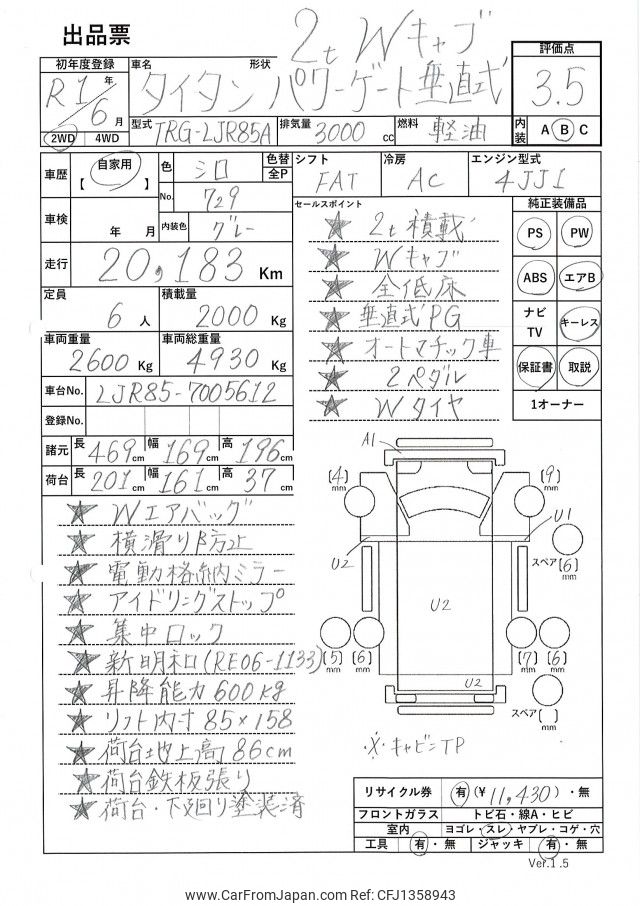 出品票
2t Wキャブ
初年度登録 車名 形状 評価点
R1年/6月 タイタン パワーゲート垂直式 3.5
2WD 4WD 型式 TRG-LJR85A 排気量 3000cc 燃料 軽油 内装 A B C
車歴 自家用 【 】 色 シロ 色替 全P シフト FAT 冷房 AC エンジン型式 4JJ1
No. 729
車検 年 月 内装色 グレー
走行 20,183 Km
定員 6人 積載量 2000Kg
車両重量 2600Kg 車両総重量 4930Kg
車台No. LJR85-7005612
登録No.
諸元 長 469cm 幅 169cm 高 196cm
荷台 長 201cm 幅 161cm 高 37cm
セールスポイント
★ 2t積載
★ Wキャブ
★ 全低床
★ 垂直式PG
★ オートマチック車
★ 2ペダル
★ Wタイヤ
純正装備品
PS PW
ABS エアB
ナビ TV キーレス
保証書 取説
1オーナー
★ Wエアバッグ
★ 横滑り防止
★ 電動格納ミラー
★ アイドリングストップ
★ 集中ロック
★ 新明和(RE06-1133)
★ 昇降能力600kg
★ リフト内寸85×158
★ 荷台地上高86cm
★ 荷台鉄板張り
★ 荷台・下廻り塗装済
A1
(4)mm (9)mm
U1
U2
スペア(6)mm
U2
(5)mm (6)mm (7)mm (6)mm
U2
スペア( )mm
※キャビンTP
リサイクル券 有(¥11,430)・無
フロントガラス トビ石・線A・ヒビ
室内 ヨゴレ・スレ・ヤブレ・コゲ・穴
工具 有・無 ジャッキ 有・無
Ver.1.5
www.CarFromJapan.com Ref: CFJ1358943